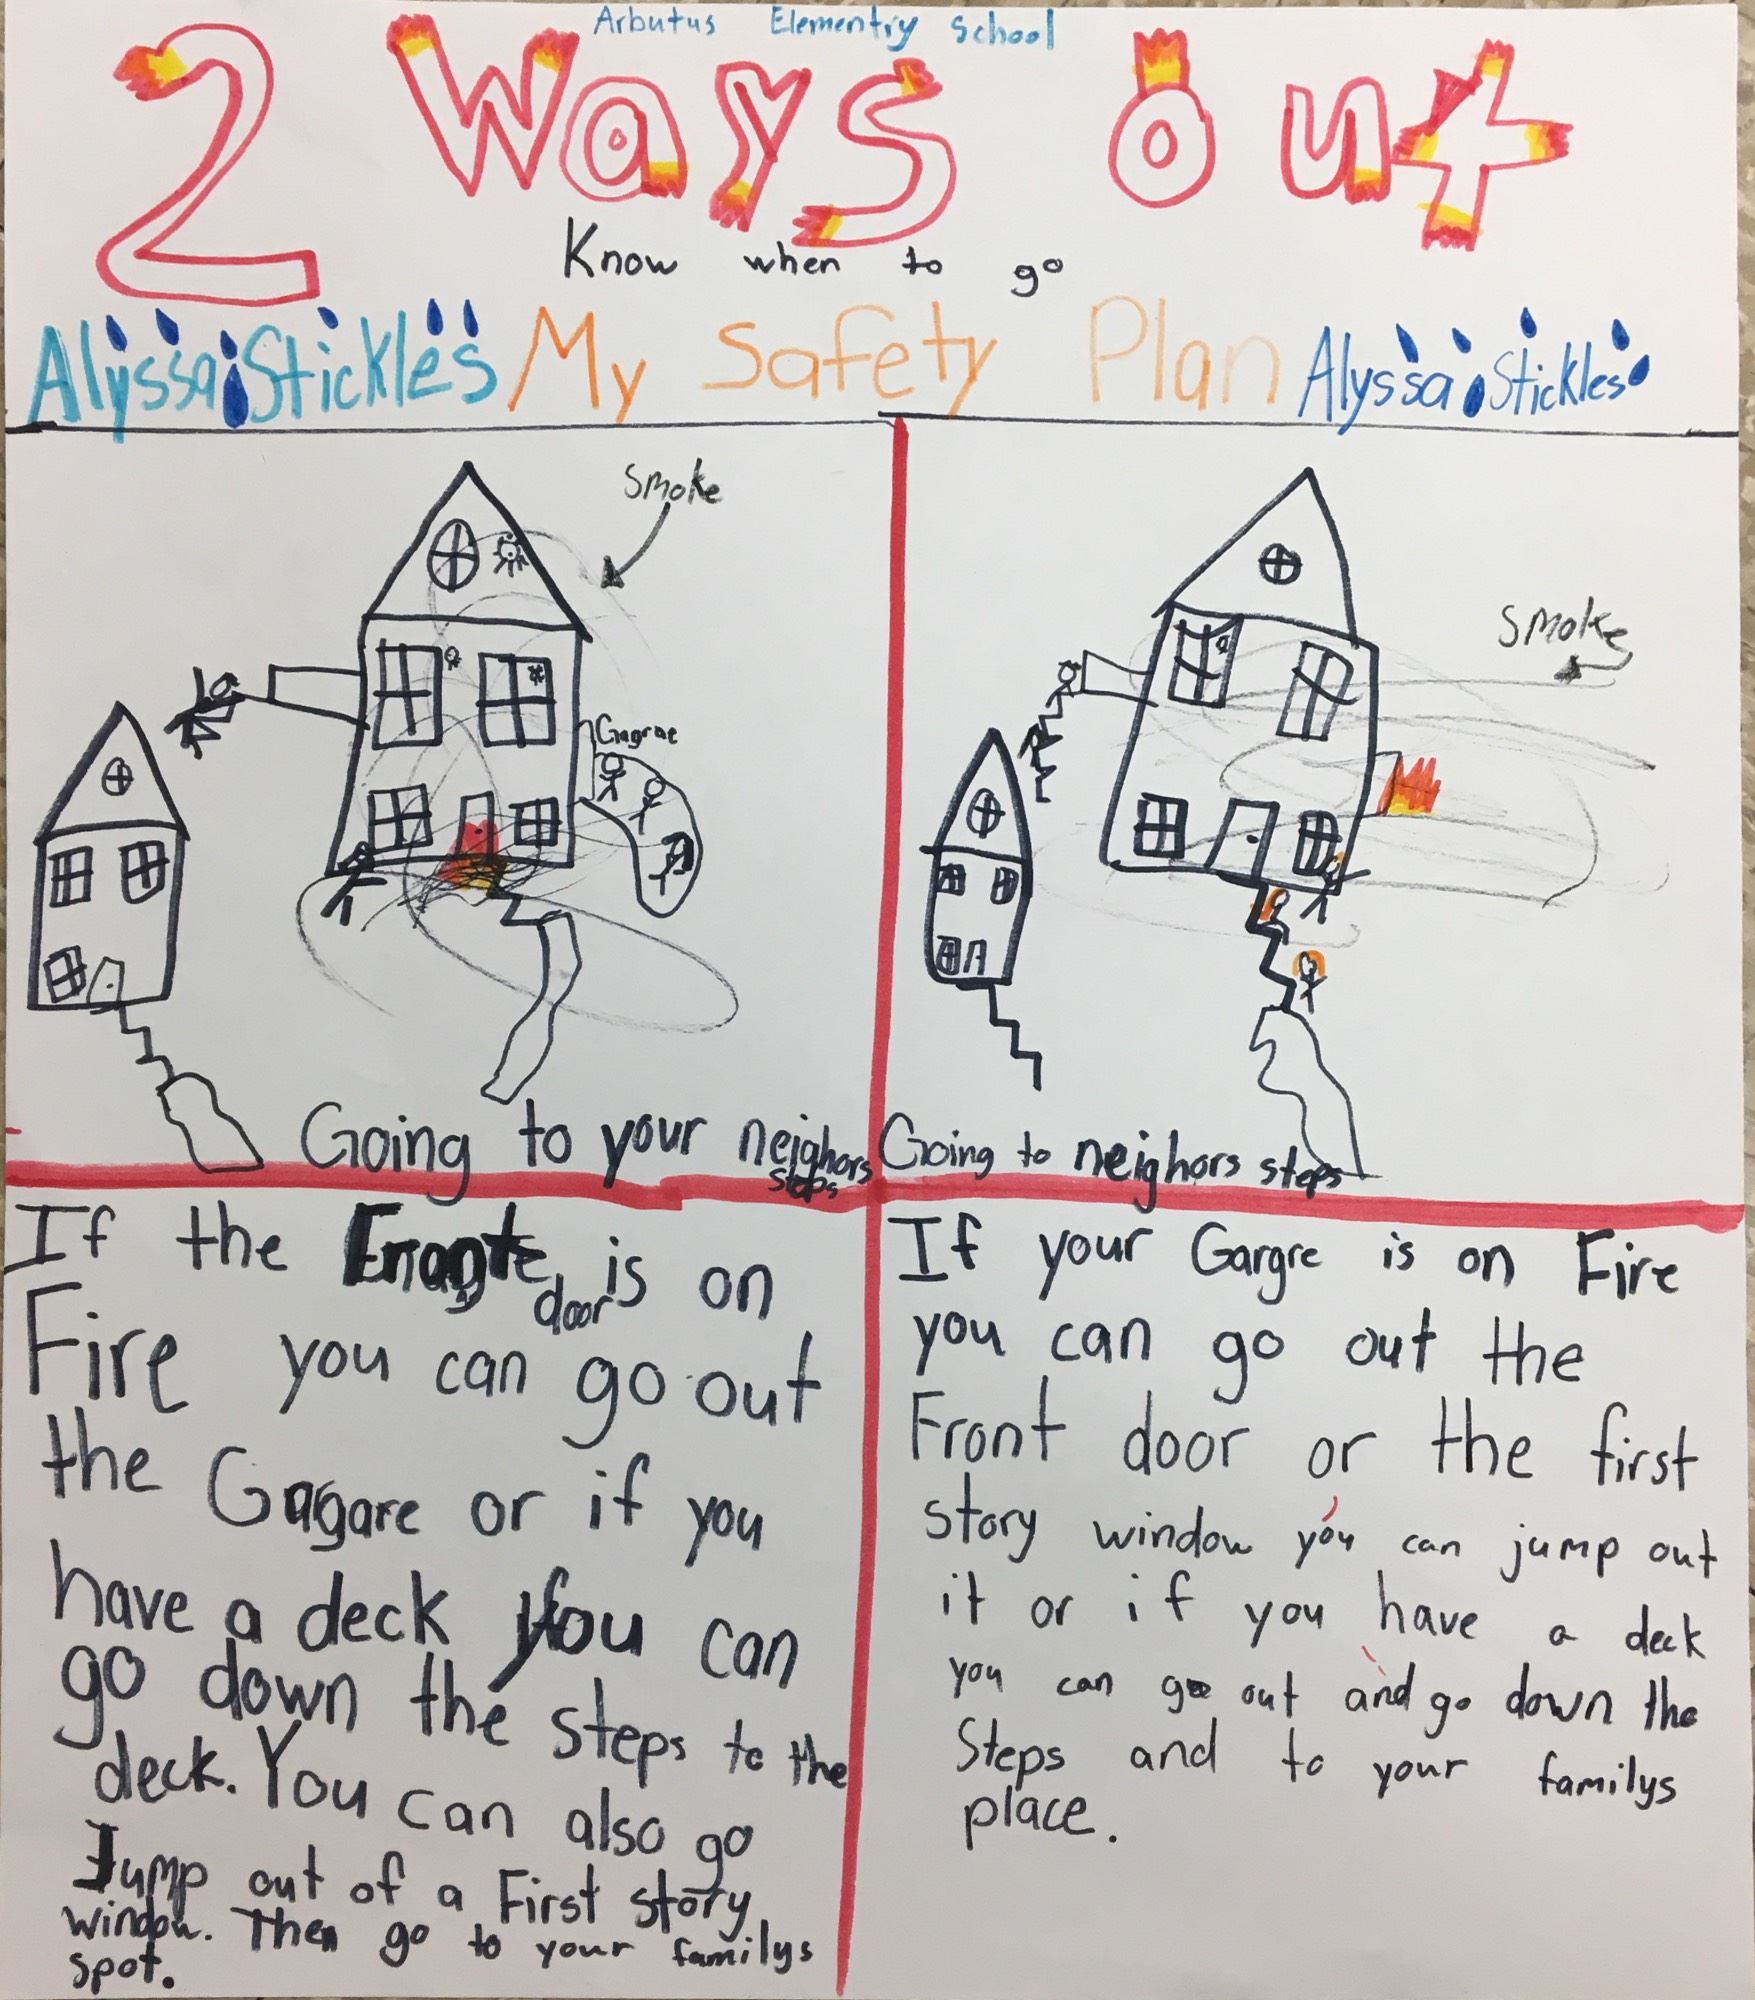 Arbutus Elementry School
2 Ways out
Know when to go
Alyssa Stickles My Safety Plan Alyssa Stickles
Smoke
Gagrae
Going to your neighors
steps
If the Front
door is on
Fire you can go out
the Gagare or if you
have a deck you can
go down the steps to the
deck. You can also go
Jump out of a First story
window. Then go to your familys
spot.
Smoke
Going to neighors steps
If your Gargre is on Fire
you can go out the
Front door or the first
story window you can jump out
it or if you have a deck
you can go out and go down the
Steps and to your familys
place.